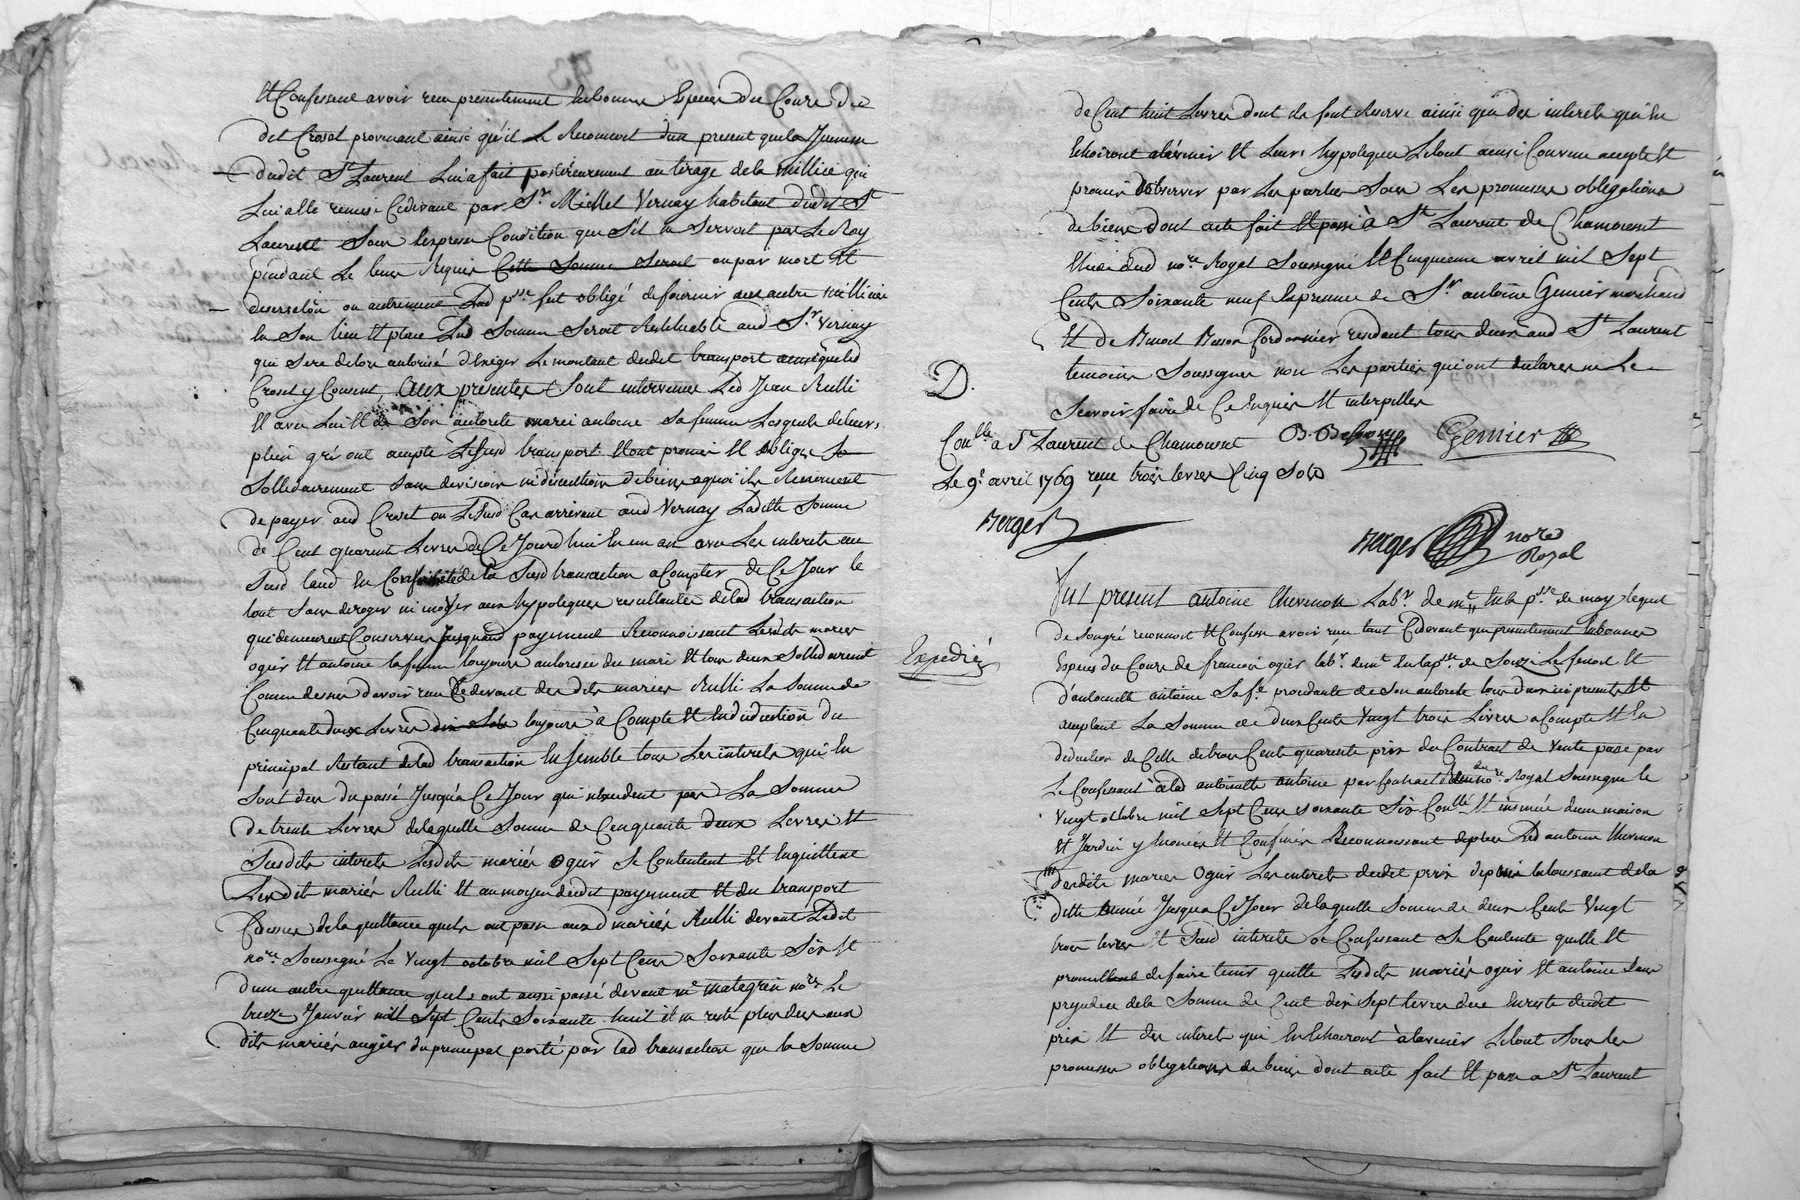 Et Confessent avoir reçu presentement En bonnes Especes du Cours du
dit Croset provenant ainsi qu'il Le Reconnoit d'un present que la Jeunesse
dudit St Laurent Lui a fait posterieurement au tirage de la Millice qui
Lui a été remis Cidevant par Sr. Michel Vernay habitant dudit St
Laurent Sous L'expresse Condition que S'il ne Servoit pas Le Roy
pendant Le tems Requis Cette Somme Seroit ou par mort Et
desersetion ou autrement Lad psse fut obligé de fournir un autre Millicien
En Son lieu Et place Lad Somme Seroit Restituable aud Sr. Vernay
qui Sera delors autorisé d'Exiger Le montant dudit transport ainsi que led
Croset y Consent, aux presentes Sont intervenus Led Jean Rulli
Et avec Lui Et de Son autorité marie antoine Sa femme Lesquels de leurs
plein gré ont accepté Le Susd transport Et ont promis Et obligés
Sollidairement Sans division ni discution de biens a quoi ils Renoncent
de payer aud Croset ou Le Susd Cas arrivant aud Vernay Laditte Somme
de Cent quarente Livres de Ce Jourd'hui En un an avec Les interets au
Susd taud En Conformité de la Susd transaction a Compter de Ce Jour le
tout Sans deroger ni innover aux hypoteques resultantes de lad transaction
qui demeurent Conservées Jusquau payement Reconnoissant Lesdits mariés
ogier Et antoine la femme toujours autorisée du mari Et tous deux Sollidairement
Comme dessus d'avoir reçu Cidevant des dits mariés Rulli La Somme de
Cinquante deux Livres dix Sols toujours à Compte Et En deduction du
principal Restant de lad transaction Ensemble tous Les interets qui En
Sont dus du passé Jusqu'a Ce Jour qui reviennent par La Somme
de trente Livres de laquelle Somme de Cinquante deux Livres Et
Susdits interets Lesdits mariés ogier Se Contentent Et En quittent
Lesdits mariés Rulli Et au moyen dudit payement Et du transport
Cidessus de la quittance quils ont passé auxd mariés Rulli devant Ledit
nore. Soussigné Le Vingt octobre mil Sept Cens Soixante Six Et
d'une autre quittance quils ont aussi passé devant me Matagrin nore Le
treize Janvier mil Sept Cents Soixante huit il ne reste plus deu aux
dits mariés augier du principal porté par lad transaction que la Somme
de Cent huit Livres dont ils font Reserve ainsi que des interets qui En
Echoiront alavenir Et Leurs hypoteques Le tout ainsi Convenu accepté Et
promis D'observer par Les parties Sous Les promesses obligations
de biens dont acte fait Et passé à St Laurent de Chamousset
Etude dud nore. Royal Soussigné Le Cinquieme avril mil Sept
Cents Soixante neuf En presence de Sr antoine Gernier marchand
Et de Benoit Besson Cordonnier residant tous deux aud St Laurent
temoins Soussignés non Les parties qui ont declaré ne Le
Scavoir faire de Ce Enquises Et interpellés
D.
B. Besson Gernier
Conllé a St Laurent de Chamousset
Le 9e avril 1769 reçu trois Livres Cinq Sols
Berger
Berger nore
Royal
Expediée
Fut present antoine Thevenon Labr. de mt En la psse de may lequel
de Son gré reconnoit Et Confesse avoir reçu tant Cidevant que presentement En bonnes
Especes du Cours de francois ogier labr. de mt En la psse de Souzi Le Ferriol Et
d'antoinette antoine Sa fe. procedante de Son autorité tous deux ici presents Et
acceptant La Somme de deux Cents Vingt trois Livres a Compte Et En
deduction de Celle de trois Cents quarente prix du Contrat de Vente passé par
Le Confessant à lad antoinette antoine par Contract du nore. Royal Soussigné le
Vingt octobre mil Sept Cens Soixante Six Conllé Et insinué d'une maison
Et Jardin y Enoncés Et Confinés Reconnoissant deplus Led antoine thevenon
desdits mariés Ogier Les interets dudit prix depuis la toussaint de la
ditte année Jusqua Ce Jour de laquelle Somme de deux Cents Vingt
trois Livres Et Susd interets Le Confessant Se Contente quitte Et
promettant de faire tenir quitte Lesdits mariés ogier Et antoine Sans
prejudice de la Somme de Cent dix Sept Livres due En reste dudit
prix Et des interets qui En Echoiront à lavenir Le tout Sous les
promesses obligations de biens dont acte fait Et passé a St Laurent